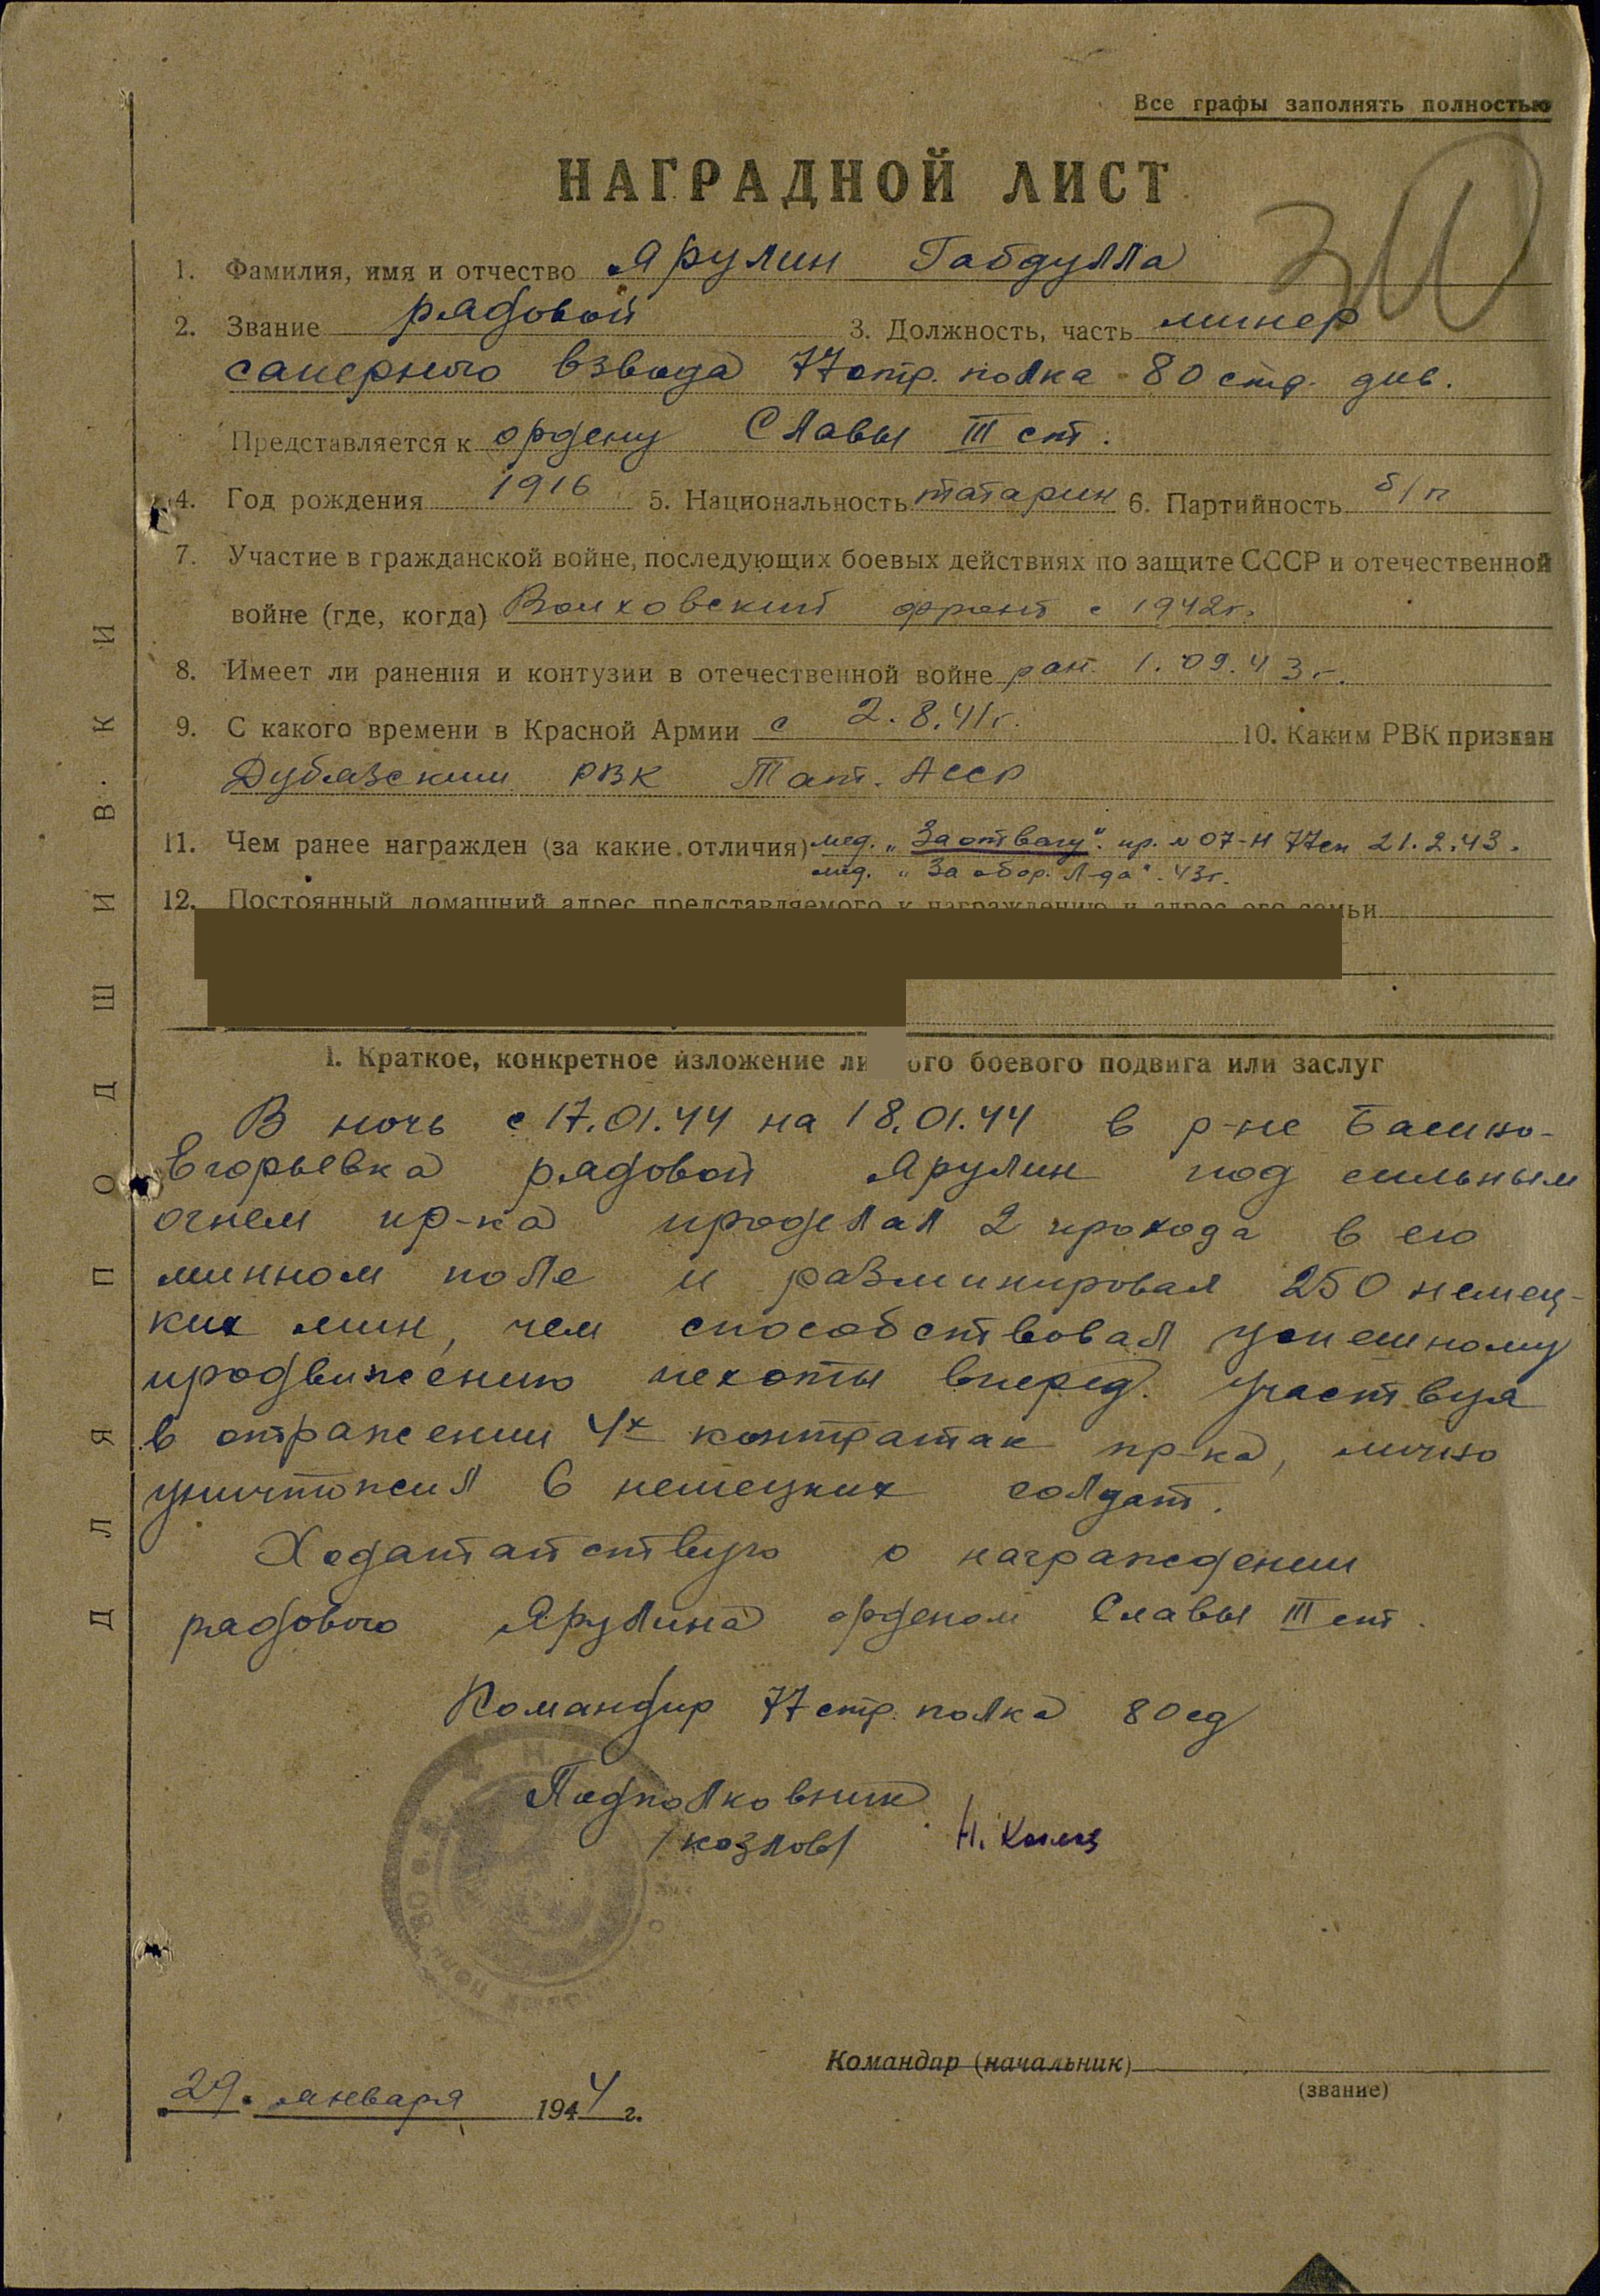 Все графы заполнять полностью
НАГРАДНОЙ ЛИСТ
30
1. Фамилия, имя и отчество Ярулин Габдулла
2. Звание рядовой 3. Должность, часть минер
саперного взвода 77 стр. полка 80 стр. див.
Представляется к ордену Славы III ст.
4. Год рождения 1916 5. Национальность татарин 6. Партийность б/п
7. Участие в гражданской войне, последующих боевых действиях по защите СССР и отечественной
войне (где, когда) Волховский фронт с 1942 г.
8. Имеет ли ранения и контузии в отечественной войне ран. 1.09.43 г.
9. С какого времени в Красной Армии с 2.8.41 г. 10. Каким РВК призван
Дубъязским РВК Тат. АССР
11. Чем ранее награжден (за какие отличия) мед. „За отвагу“. пр. № 07-Н 77сп 21.2.43.
мед. „За обор. Л-да“. 43г.
12. Постоянный домашний адрес представляемого к награждению и адрес его семьи
I. Краткое, конкретное изложение ли ого боевого подвига или заслуг
В ночь с 17.01.44 на 18.01.44 в р-не
Егорьевка рядовой Ярулин под сильным
огнем пр-ка проделал 2 прохода в его
минном поле и разминировал 250 немец-
ких мин, чем способствовал успешному
продвижению пехоты вперед. Участвуя
в отражении 4х контратак пр-ка, лично
уничтожил 6 немецких солдат.
Ходатайствую о награждении
рядового Ярулина орденом Славы III ст.
Командир 77 стр. полка 80 сд
Подполковник
/Козлов/ Н. Козлов
Командир (начальник)
(звание)
29. января 1944 г.
ДЛЯ ПОДШИВКИ